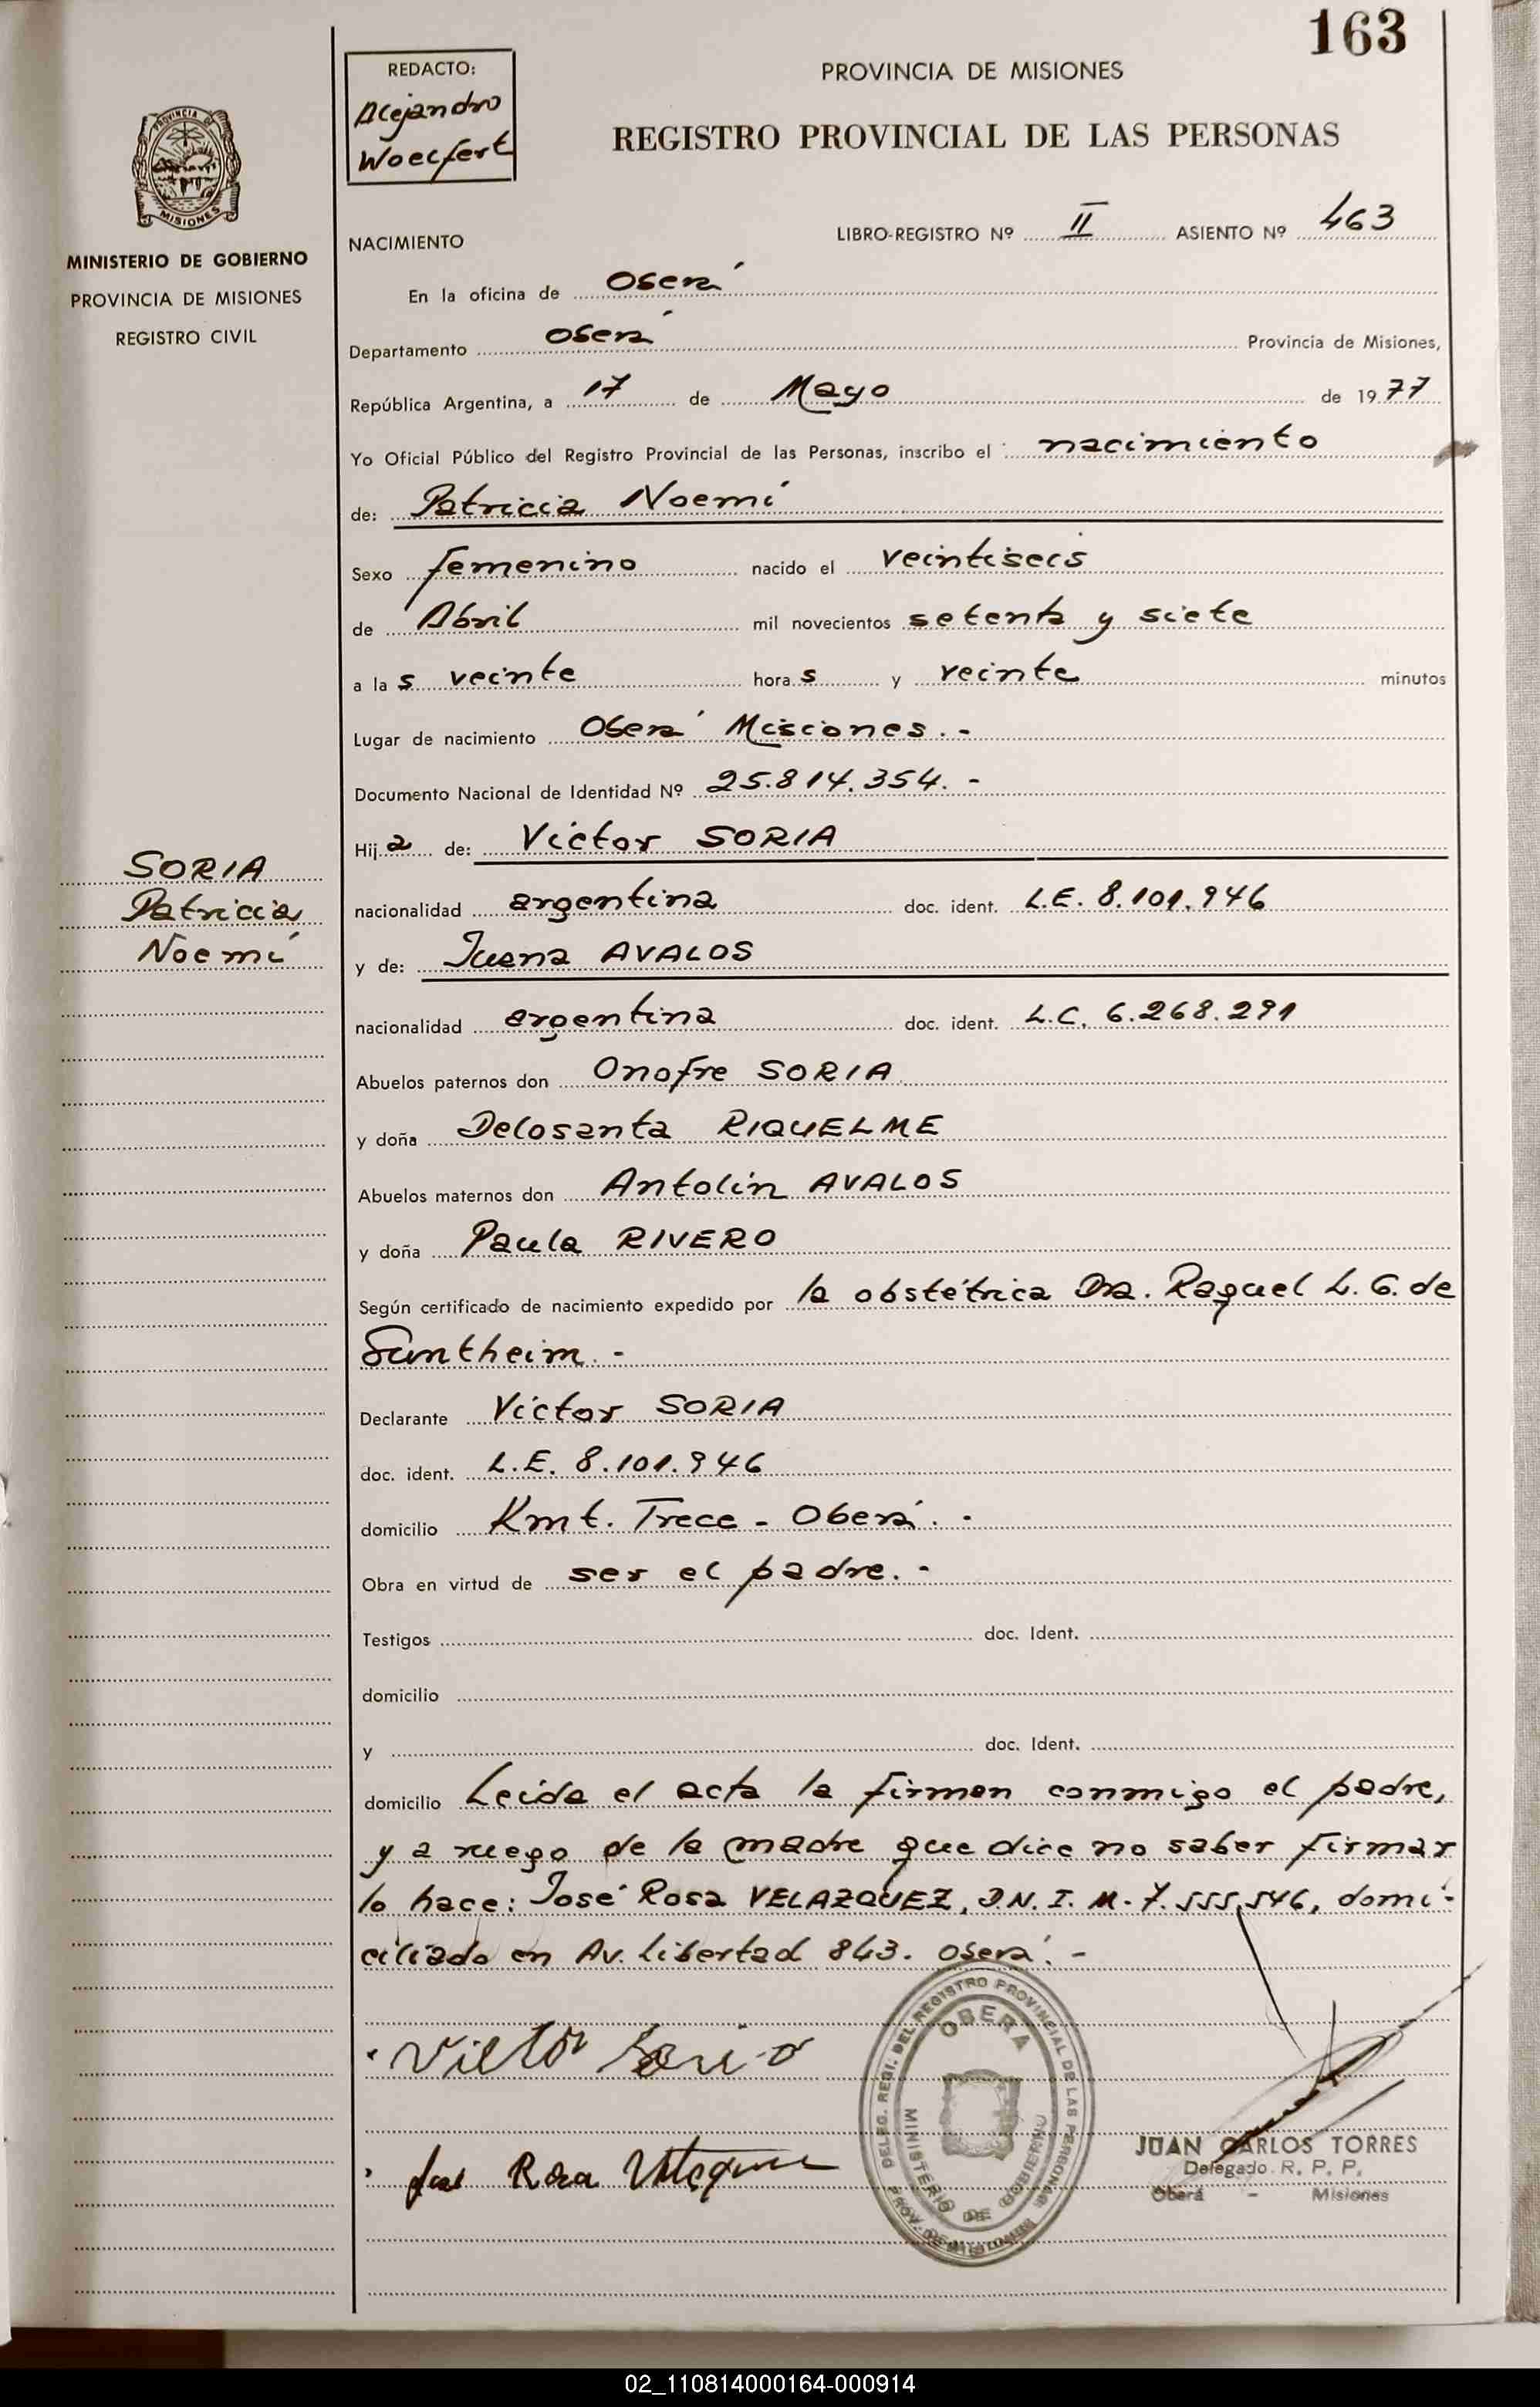 163
REDACTO:
Alejandro
Woelfert
PROVINCIA DE MISIONES
REGISTRO PROVINCIAL DE LAS PERSONAS
PROVINCIA DE
MISIONES
MINISTERIO DE GOBIERNO
PROVINCIA DE MISIONES
REGISTRO CIVIL
LIBRO-REGISTRO Nº II ASIENTO Nº 463
NACIMIENTO
En la oficina de Oberá
Departamento Oberá Provincia de Misiones,
República Argentina, a 17 de Mayo de 1977
Yo Oficial Público del Registro Provincial de las Personas, inscribo el nacimiento
de: Patricia Noemí
Sexo femenino nacido el veintiseis
de Abril mil novecientos setenta y siete
a las veinte horas y veinte minutos
Lugar de nacimiento Oberá Misiones.-
Documento Nacional de Identidad Nº 25.814.354.-
Hija de: Victor SORIA
SORIA
Patricia
Noemí
nacionalidad argentina doc. ident. L.E. 8.101.946
y de: Juana AVALOS
nacionalidad argentina doc. ident. L.C. 6.268.291
Abuelos paternos don Onofre SORIA
y doña Delosanta RIQUELME
Abuelos maternos don Antolin AVALOS
y doña Paula RIVERO
Según certificado de nacimiento expedido por la obstétrica Dra. Raquel L. G. de
Suntheim.-
Declarante Victor SORIA
doc. ident. L.E. 8.101.946
domicilio Kmt. Trece - Oberá.-
Obra en virtud de ser el padre.-
Testigos doc. Ident.
domicilio
y doc. Ident.
domicilio Leida el acta la firman conmigo el padre,
y a ruego de la madre que dice no saber firmar
lo hace: José Rosa VELAZQUEZ, D.N.I. M-7.555.546, domi-
ciliado en Av. Libertad 843. Oberá.-
Victor Soria
José Rosa Velazquez
DELEG. REGI. DEL REGISTRO PROVINCIAL DE LAS PERSONAS
OBERA
MINISTERIO DE GOBIERNO
PROV. DE MISIONES
JUAN CARLOS TORRES
Delegado R. P. P.
Oberá - Misiones
02_110814000164-000914